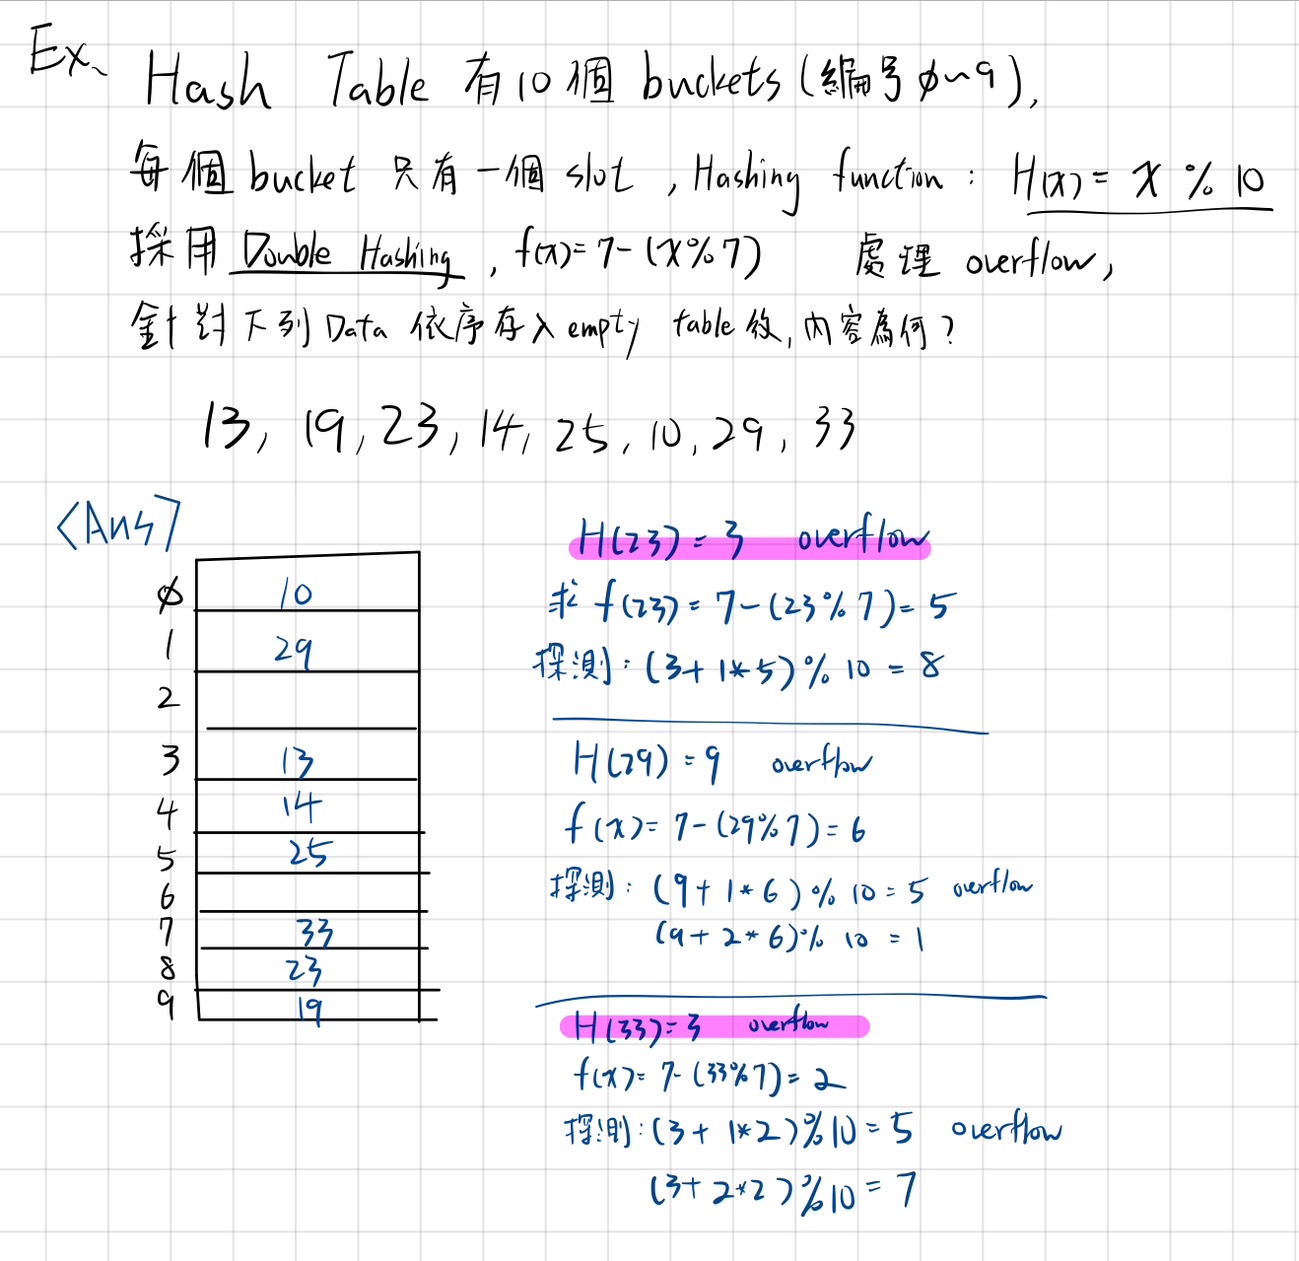 Ex、 Hash Table 有10個 buckets (編号 ø~9),
每個 bucket 只有一個 slot , Hashing function : H(x) = x % 10
採用 Double Hashing , f(x)= 7-(x%7) 處理 overflow,
針對下列 Data 依序存入 empty table 後, 內容為何?
13, 19, 23, 14, 25, 10, 29, 33
<Ans>
ø 10
1 29
2
3 13
4 14
5 25
6
7 33
8 23
9 19
H(23) = 3 overflow
求 f(23) = 7-(23%7) = 5
探測 : (3+1*5)%10 = 8
H(29) = 9 overflow
f(x)= 7-(29%7) = 6
探測 : (9+1*6)%10 = 5 overflow
(9+2*6)%10 = 1
H(33)=3 overflow
f(x)= 7-(33%7) = 2
探測 : (3+1*2)%10 = 5 overflow
(3+2*2)%10 = 7